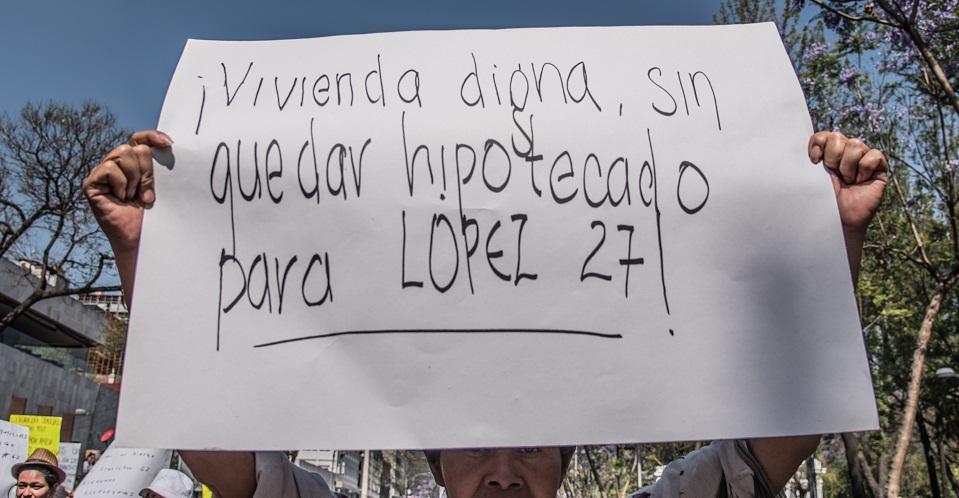 ¡Vivienda digna, sin
quedar hipotecado
para LOPEZ 27!